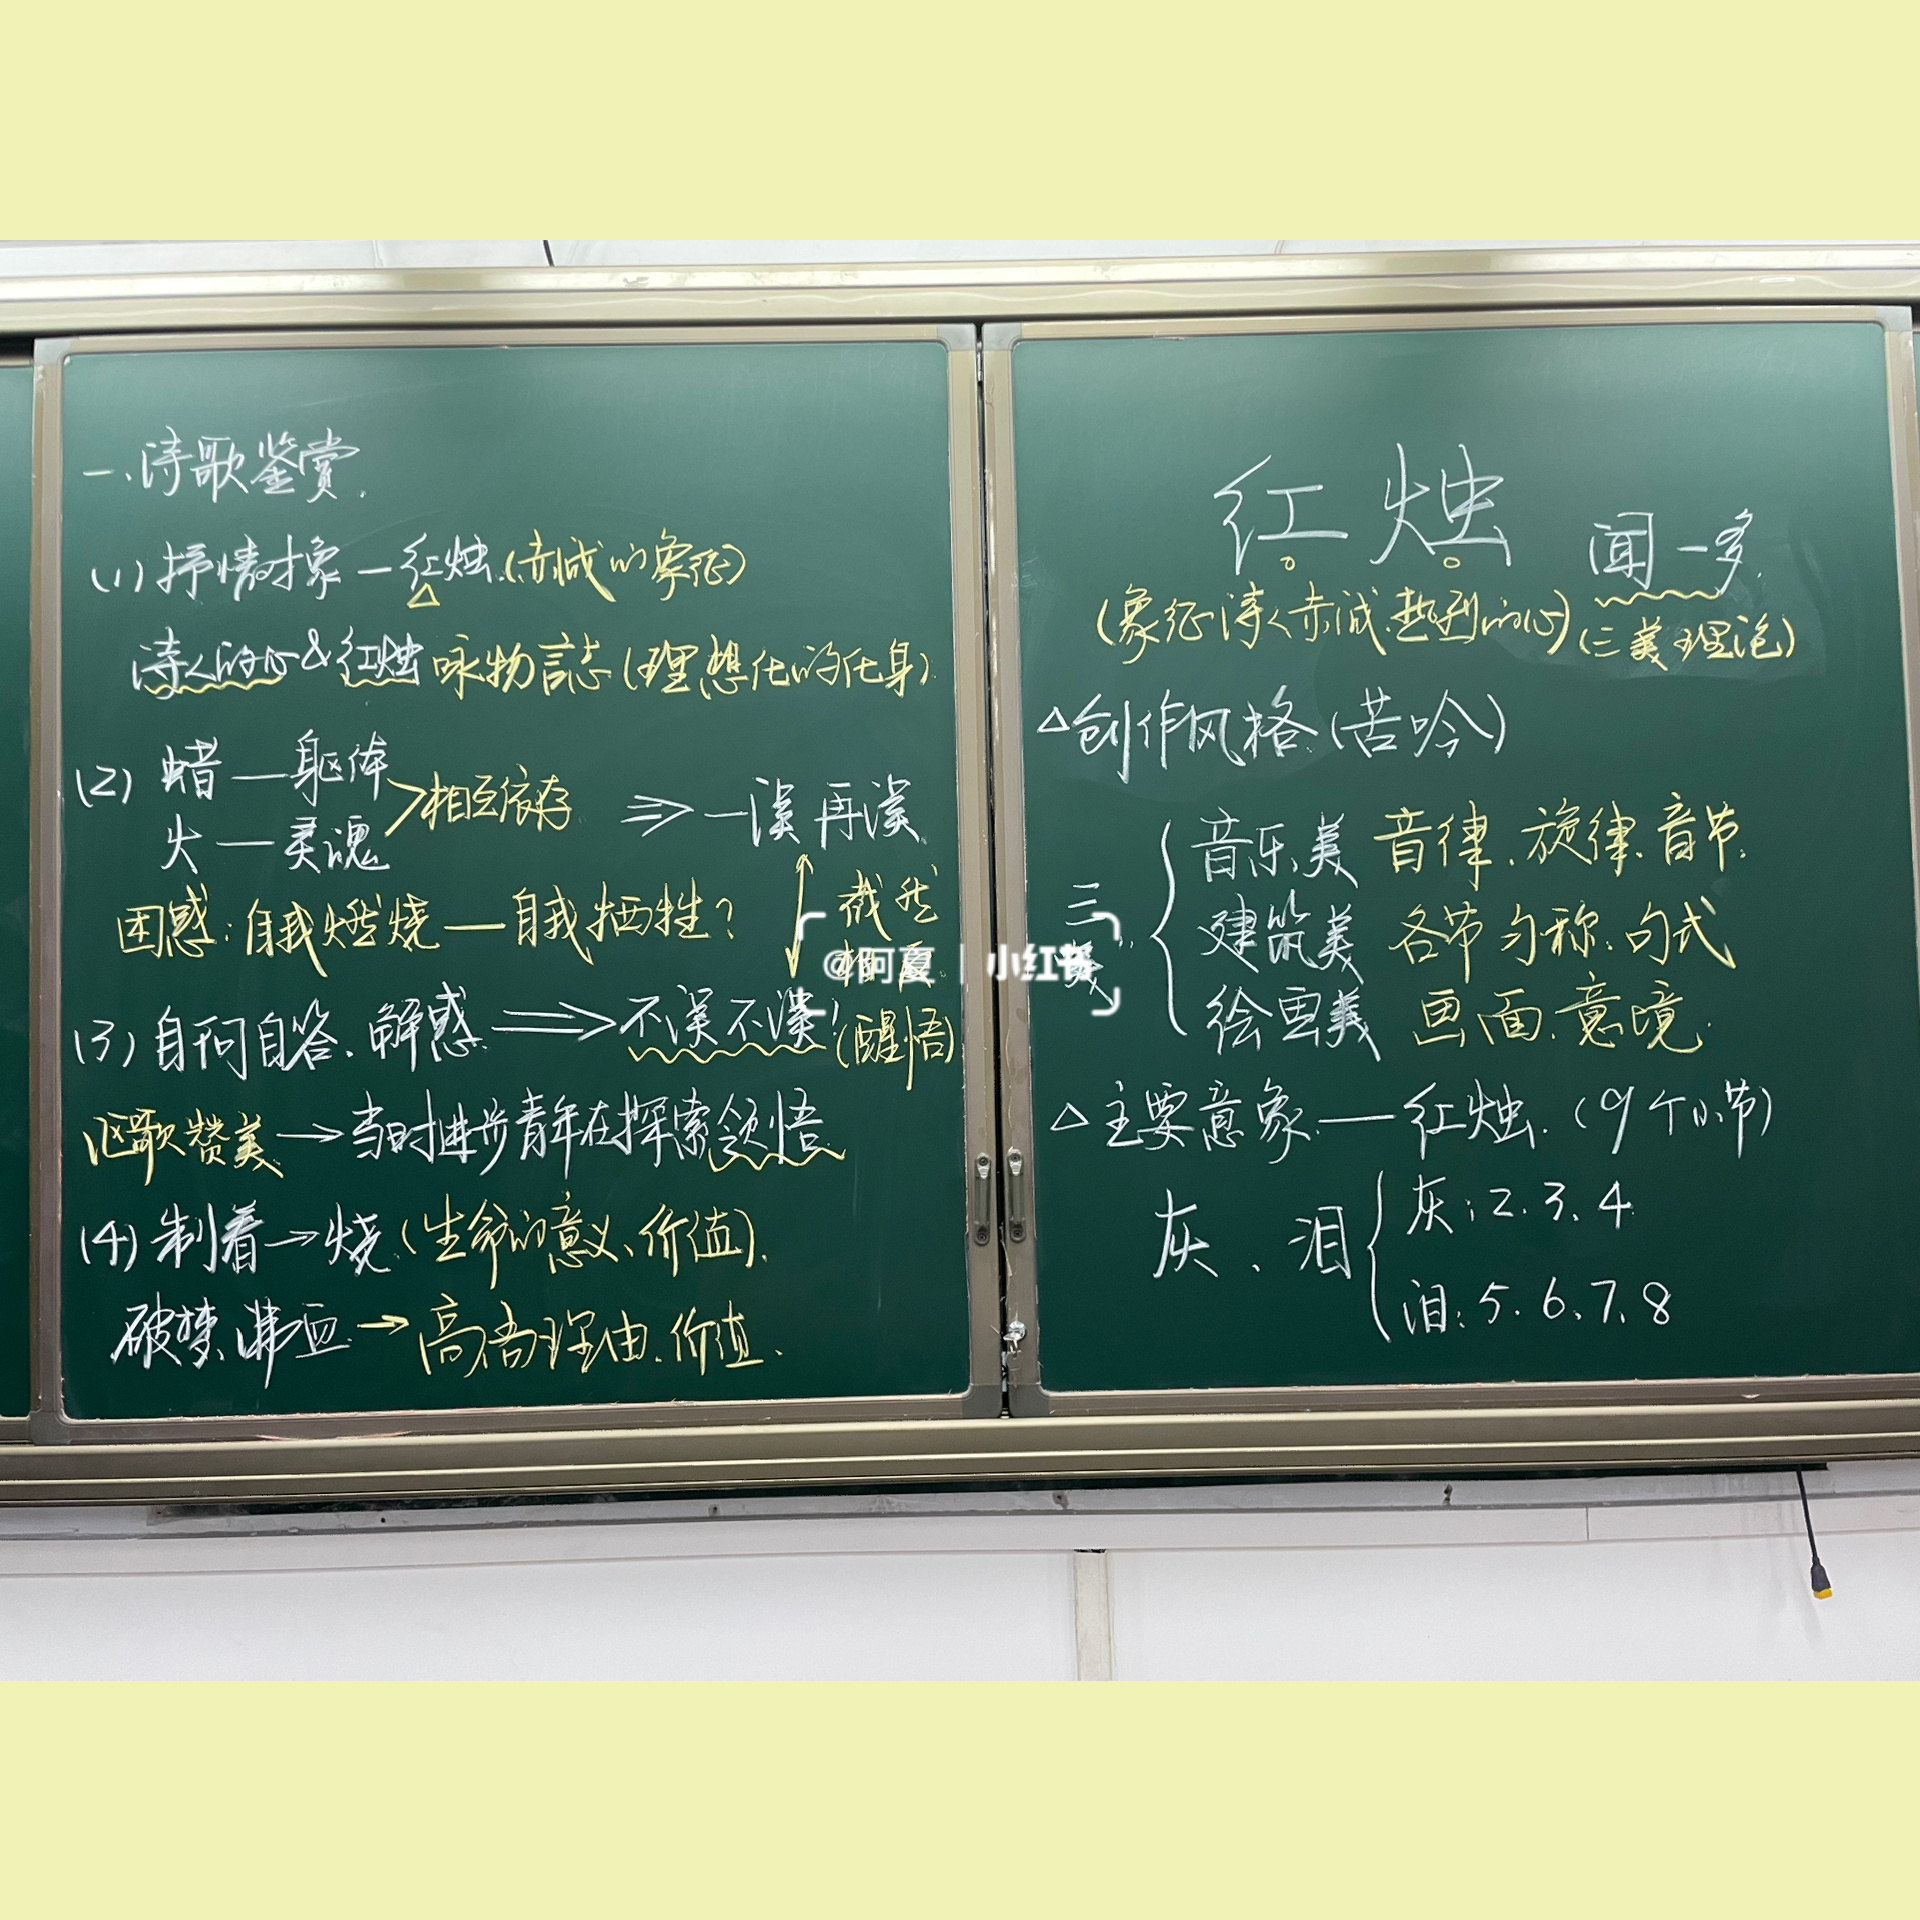 一、诗歌鉴赏.
(1)抒情对象—红烛.(赤诚的象征)
诗人的心&红烛 咏物言志(理想化的化身).
(2) 蜡—躯体
火—灵魂
>相互依存 ⇒ 一误再误.
困惑:自我燃烧—自我牺牲?
截然
相反.
(3)自问自答、解惑. ⇒ 不误不误!(醒悟)
讴歌赞美→当时进步青年在探索领悟.
(4)制着→烧.(生命的意义、价值).
破梦、沸血.→高.理由.价值.
红烛 闻一多.
(象征诗人赤诚.热烈的心) (三美理论)
△创作风格.(苦吟)
三美.
音乐美 音律.旋律.音节.
建筑美 各节匀称.句式
绘画美 画面.意境.
△主要意象—红烛.(9个小节)
灰、泪
灰:2.3.4.
泪:5.6.7.8
@阿夏 | 小红书